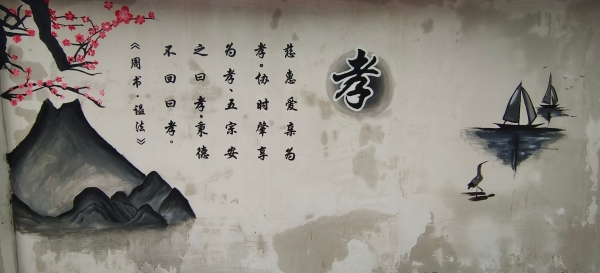 孝
慈惠爱亲为
孝。协时肇享
为孝、五宗安
之曰孝,秉德
不回曰孝。
《周书·谥法》